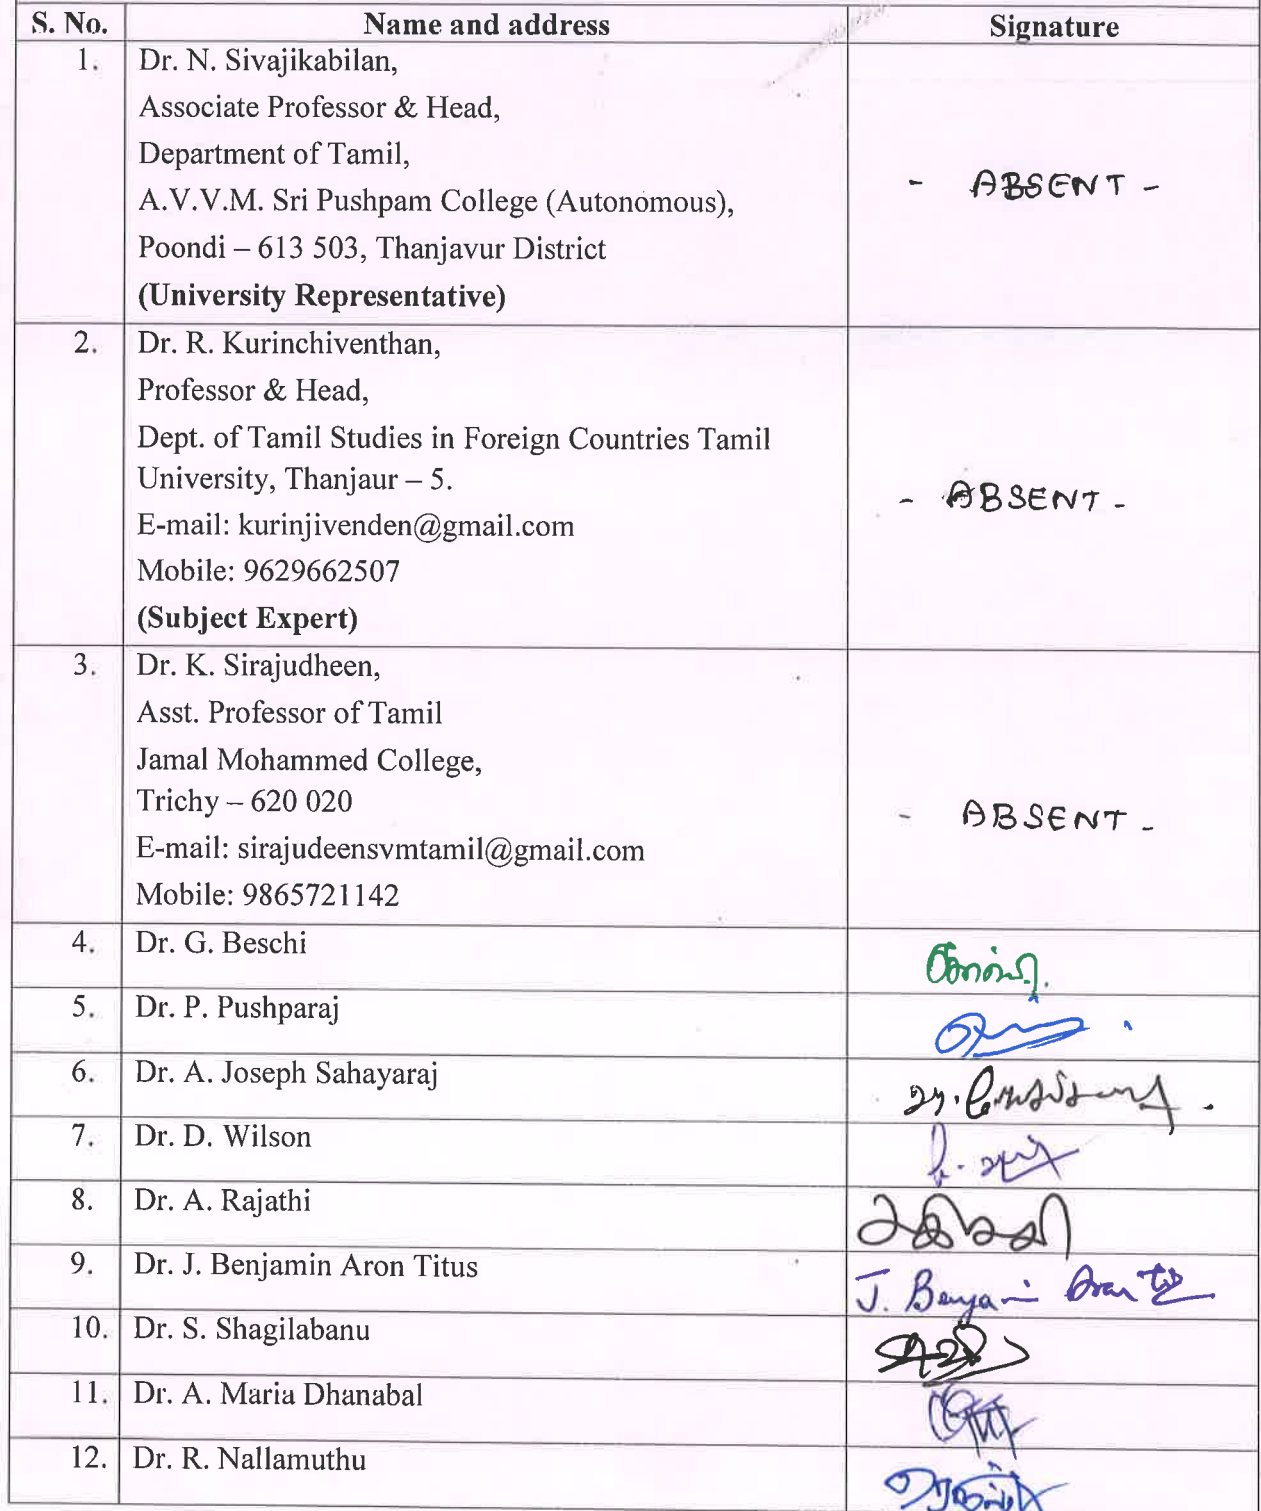 S. No. Name and address Signature
1. Dr. N. Sivajikabilan,
Associate Professor & Head,
Department of Tamil,
A.V.V.M. Sri Pushpam College (Autonomous),
Poondi – 613 503, Thanjavur District
(University Representative)
- ABSENT -
2. Dr. R. Kurinchiventhan,
Professor & Head,
Dept. of Tamil Studies in Foreign Countries Tamil
University, Thanjaur – 5.
E-mail: kurinjivenden@gmail.com
Mobile: 9629662507
(Subject Expert)
- ABSENT -
3. Dr. K. Sirajudheen,
Asst. Professor of Tamil
Jamal Mohammed College,
Trichy – 620 020
E-mail: sirajudeensvmtamil@gmail.com
Mobile: 9865721142
- ABSENT -
4. Dr. G. Beschi
5. Dr. P. Pushparaj
6. Dr. A. Joseph Sahayaraj
7. Dr. D. Wilson
8. Dr. A. Rajathi
9. Dr. J. Benjamin Aron Titus J.
10. Dr. S. Shagilabanu
11. Dr. A. Maria Dhanabal
12. Dr. R. Nallamuthu